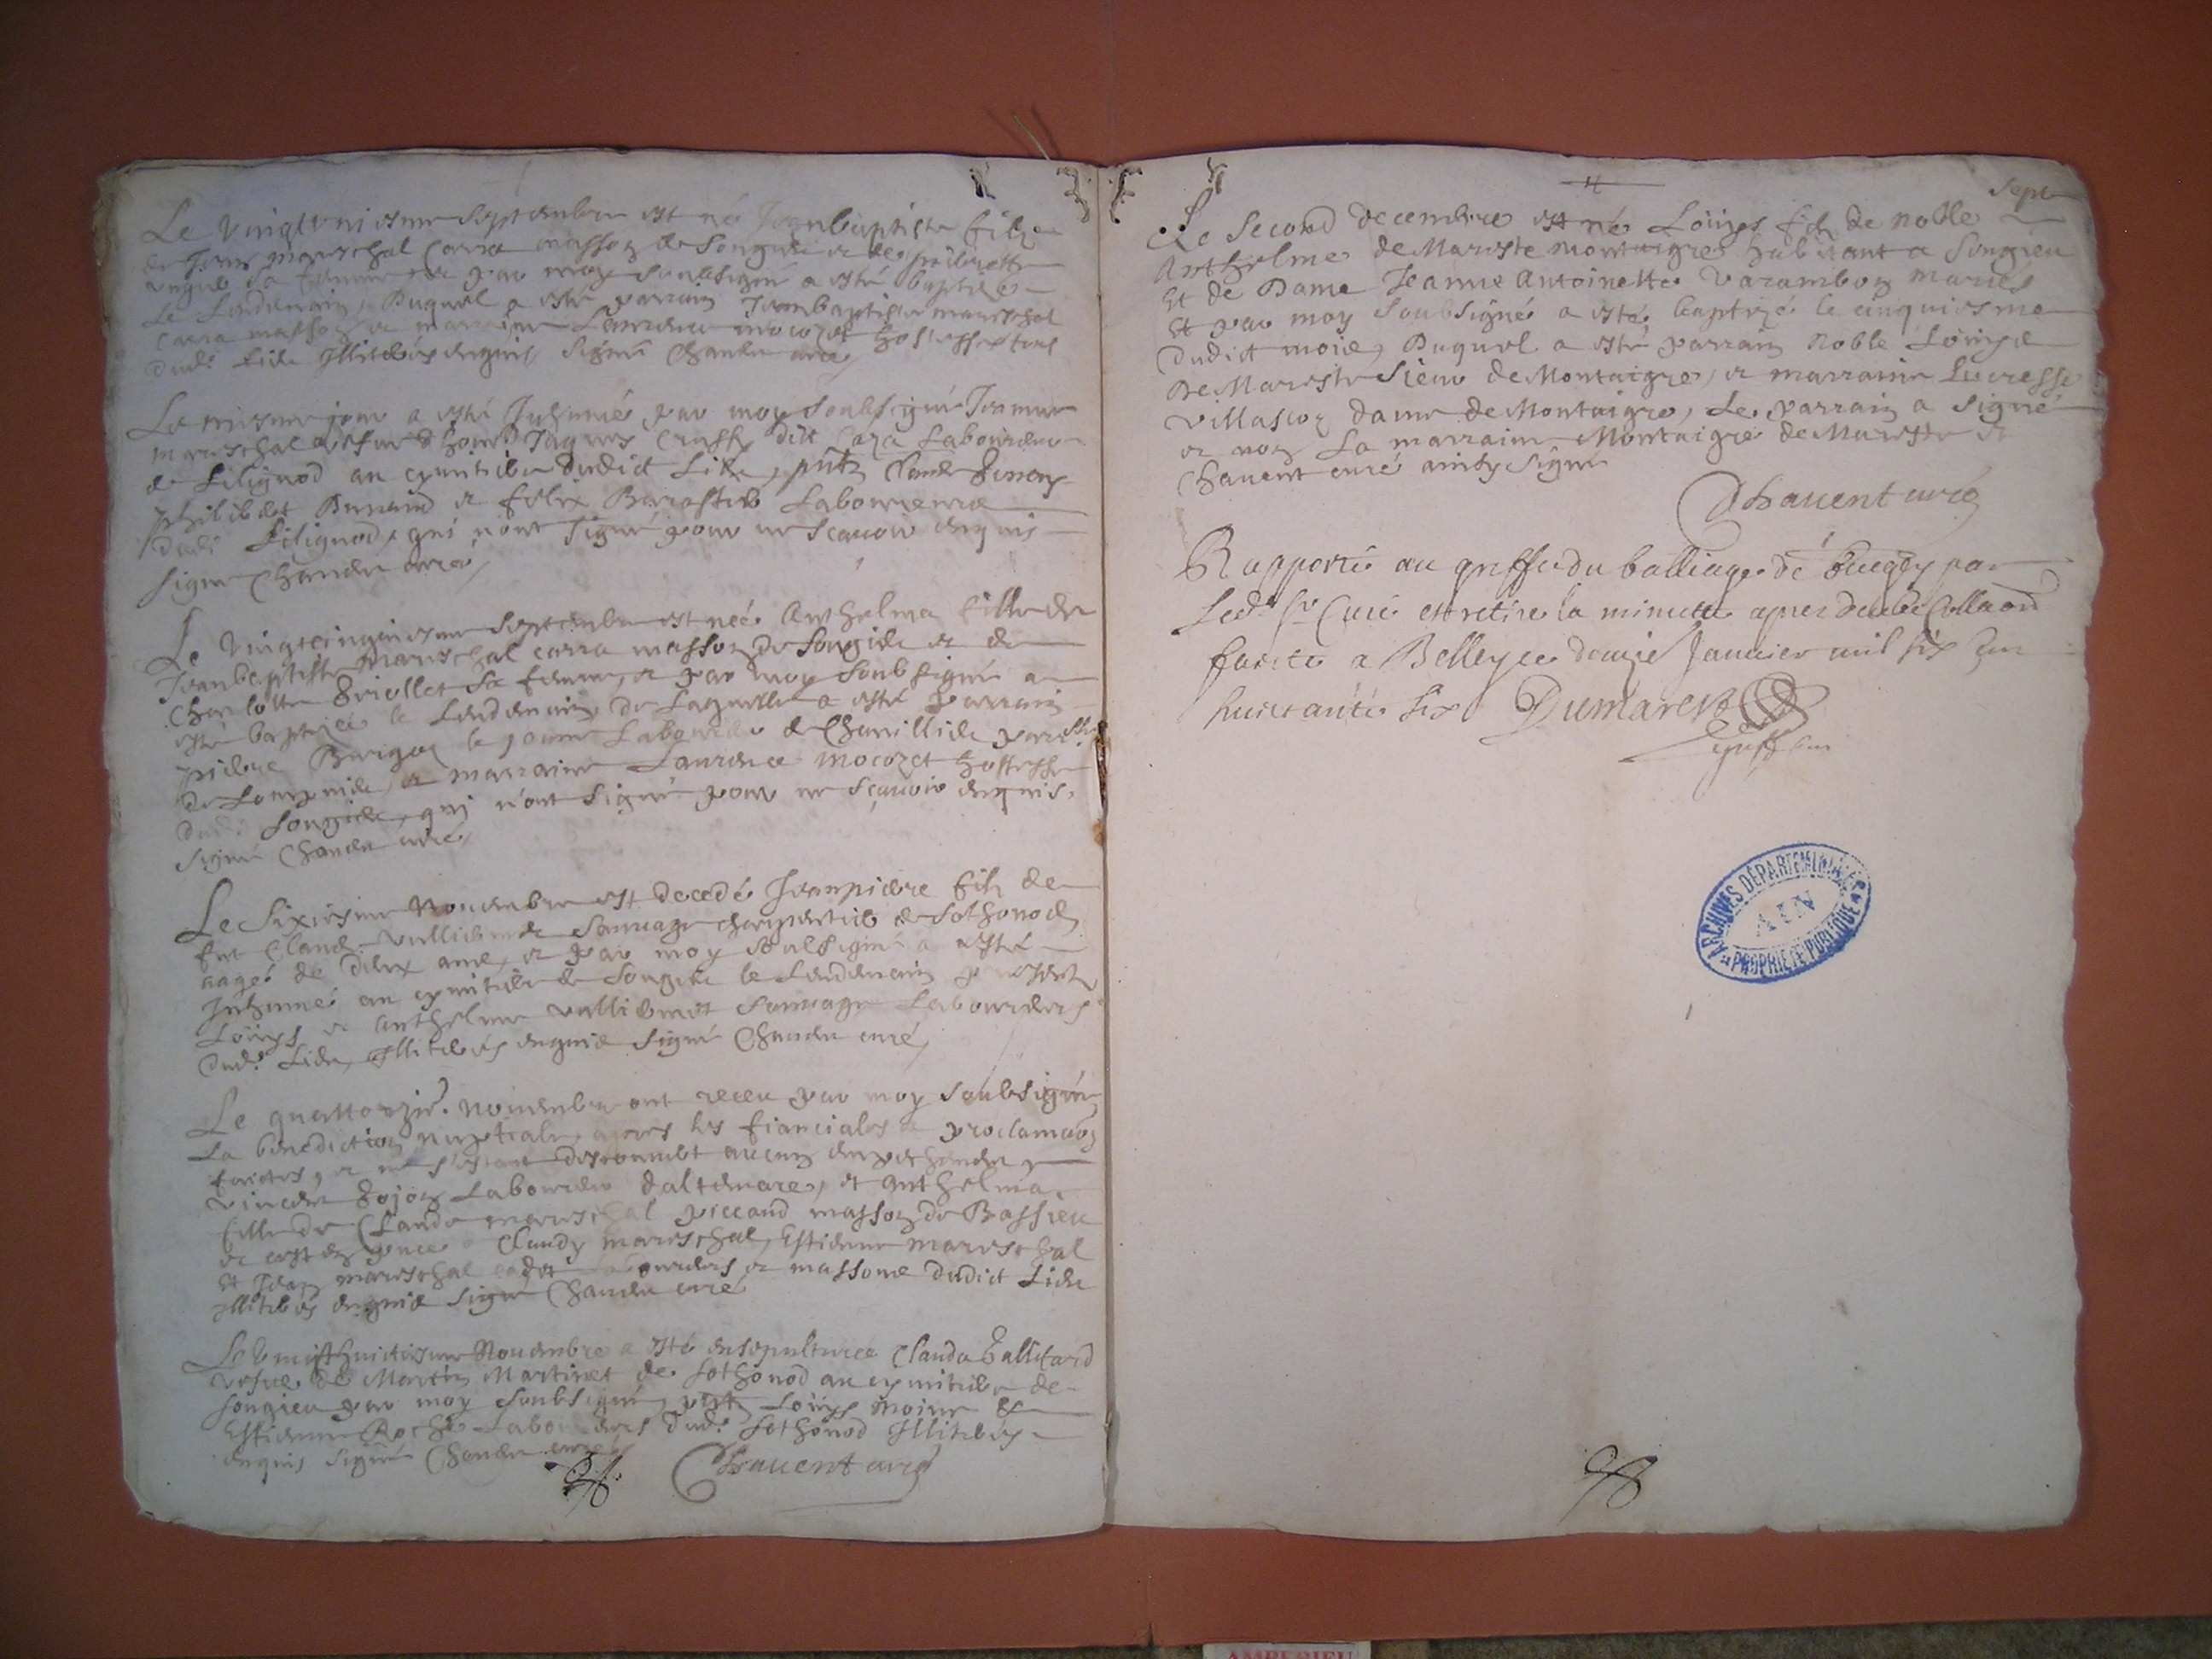 Le vingtuniesme septembre est né Jeanbaptiste filz
de Jean mareschal Carra masson de Songieu et de
sa femme et par moy soubsigné a esté baptizé
le lendemain, Duquel a esté parrain Jeanbaptiste mareschal
Carra masson et marraine Laurence mocozet hostesse tous
dud. lieu Illiterés enquis signé Chavent curé
Le mesme jour a esté Inhumée par moy soubsigné Jeanne
mareschal vefve d'honed Jaques Crussy dit Cara Laboureur
de Lilignod au cymitiere dudict Lieu, pntz Claude
philibert Dunand et felix Laboureurs
dudt Lilignod, qui n'ont signé pour ne scavoir enquis
signé Chavent curé
Le vingtcinquiesme septembre est née Anthelma fille de
Jeanbaptiste Mareschal carra masson de Songieu et de
Charlotte sa femme, et par moy soubsigné a
esté baptizée le lendemain, de Laquelle a esté parrain
pierre le jeune Laboureur de Chavillieu parsse
de Lompnieu, et marraine Laurence mocozet hostesse
dudt Songieu, qui n'ont signé pour ne sçavoir enquis,
signé Chavent curé
Le sixiesme Novembre est decedé Jeanpierre filz de
fut Claude vullierme Sauvage charpentier de Sothonod
aagé de deux ans, et par moy soubsigné a esté
Inhumé au cymitiere de Songieu le lendemain presentz
Loüys et Anthelme vulliermet Sauvage Laboureurs
dudt Lieu, Illiterés enquis signé Chavent curé
Le quattorzie. novembre ont receu par moy soubsigné
La benediction nuptiale, apres les fiancialles et proclamaons
faictes, et ne s'estant descouvert aucun empechement,
vincent Laboureur d'altemare, et Anthelma
fille de Claude mareschal piccand masson de Bassieu
et cest en pnce Claudy mareschal, Estienne mareschal
Et Jean mareschal Laboureurs et massons dudict Lieu
Illiterés enquis signé Chavent curé
Le vingthuictiesme Novembre a esté ensepulturée Clauda Ballitard
vefve de Martin Martinet de Sothonod au cymitiere de
songieu par moy soubsigné, pntz Loüys moine &
Estienne Roche Laboureurs dudt Sothonod Illiterés
enquis signé Chavent curé
Chavent curé
Sept
Le Second decembre est né Loüys filz de noble
Anthelme de Mareste Montaigre habitant a Songieu
Et de Dame Jeanne Antoinette Varambon mariés
Et par moy soubsigné a esté baptizé le cinquiesme
dudict mois, Duquel a esté parrain Noble Loüys
De Mareste sieur de Montaigre, et marraine Lucresse
Villasion dame de Montaigre, Le parrain a signé
et non la marraine Montaigre de Mareste et
Chavent curé ainsy signé
Chavent curé
Rapporté au greffe du balliage de Bugey par
led. sr Curé et retiré la minutte apres deube Collaon
faicte a Belley ce douzie Janvier mil six cen
huictante six Dumarest
greffier
ARCHIVES DÉPARTEMENTALES
AIN
PROPRIÉTÉ PUBLIQUE